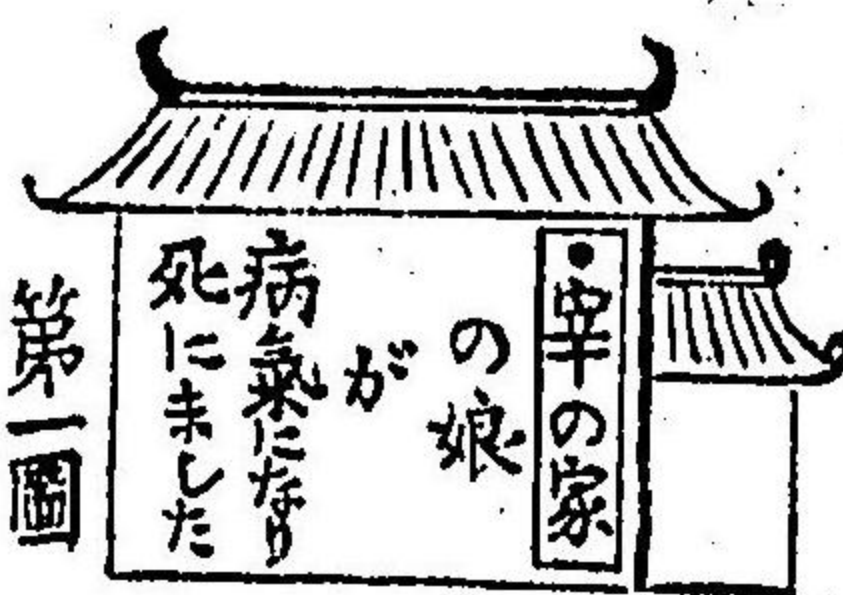 ●宰の家
の娘
が
病氣になり
死にました
第一圖